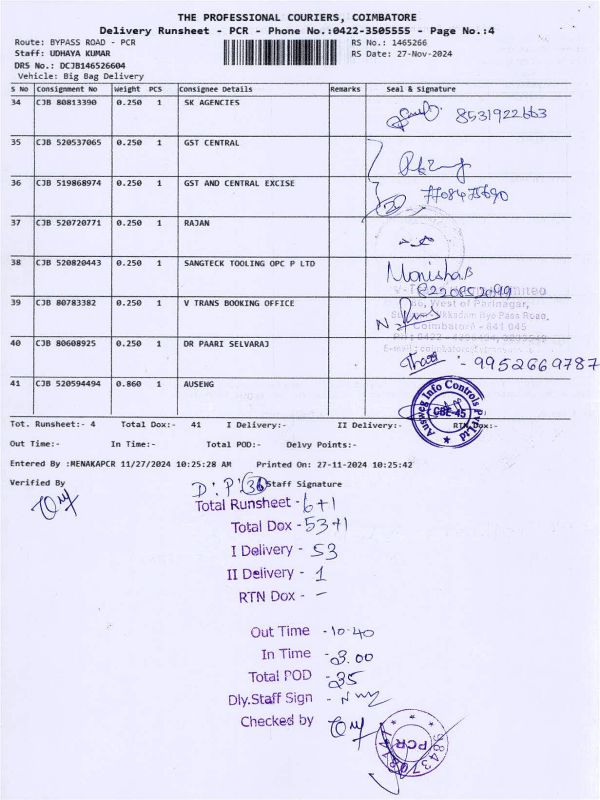 THE PROFESSIONAL COURIERS, COIMBATORE
Delivery Runsheet - PCR - Phone No.:0422-3505555 - Page No.:4
Route: BYPASS ROAD - PCR RS No.: 1465266
Staff: UDHAYA KUMAR RS Date: 27-Nov-2024
DRS No.: DCJB146526604
Vehicle: Big Bag Delivery
S No Consignment No Weight PCS Consignee Details Remarks Seal & Signature
34 CJB 80813390 0.250 1 SK AGENCIES 8531922663
35 CJB 520537065 0.250 1 GST CENTRAL
36 CJB 519868974 0.250 1 GST AND CENTRAL EXCISE 7708475690
37 CJB 520720771 0.250 1 RAJAN
38 CJB 520820443 0.250 1 SANGTECK TOOLING OPC P LTD Monisha.B
39 CJB 80783382 0.250 1 V TRANS BOOKING OFFICE
West of Parinagar,
Bye Pass Road,
Coimbatore - 641 045
40 CJB 80608925 0.250 1 DR PAARI SELVARAJ - 9952669787
41 CJB 520594494 0.860 1 AUSENG
Ausweg Info Controls Pvt Ltd
CBE-45
Tot. Runsheet:- 4 Total Dox:- 41 I Delivery:- II Delivery:- RTN Dox:-
Out Time:- In Time:- Total POD:- Delvy Points:-
Entered By :MENAKAPCR 11/27/2024 10:25:28 AM Printed On: 27-11-2024 10:25:42
Verified By D.P. 36 Staff Signature
Total Runsheet - 6+1
Total Dox - 53+1
I Delivery - 53
II Delivery - 1
RTN Dox - -
Out Time - 10.40
In Time - 3.00
Total POD - 35
Dly.Staff Sign -
Checked by
PCR